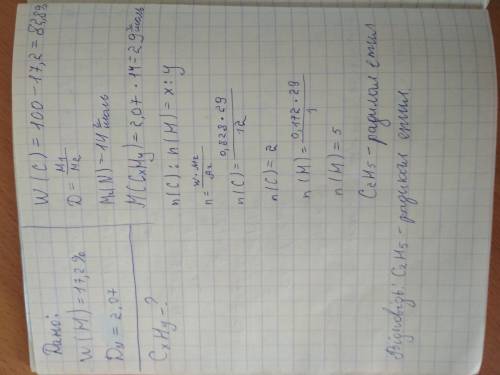 Дано:
W(H)=17,2%
DN=2,07
CxHy-?
W(C)=100-17,2=82,8%
D=M1/M2
M(N)=14 г/моль
M(CxHy)=2,07·14=29 г/моль
n(C):n(H)=x:y
n=W·Mr/Ar
n(C)=0,828·29/12
n(C)=2
n(H)=0,172·29/1
n(H)=5
C2H5-радикал етил
Відповідь: C2H5-радикал етил